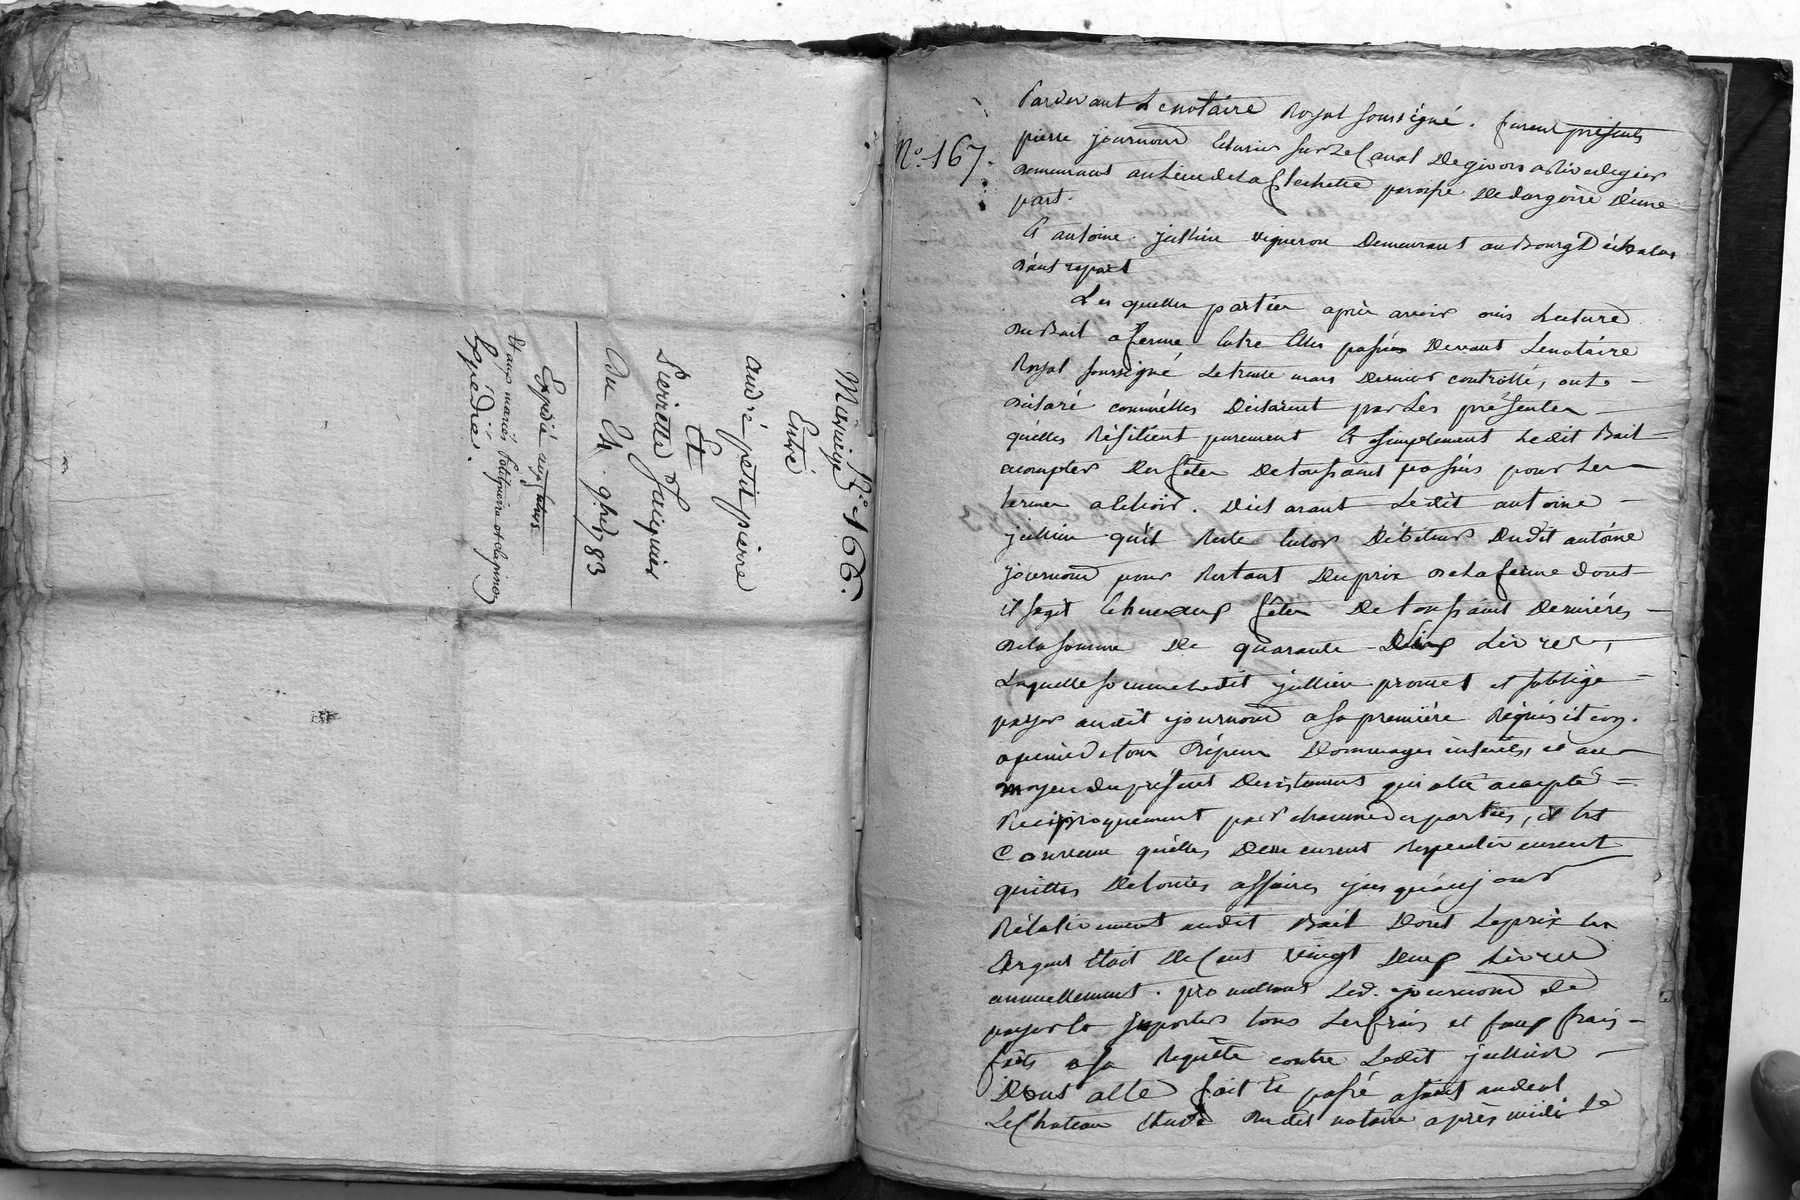 N.º 166.
Mariage
Entre
andré petitpierre
Et
Pierrette Jacquier
Du 24. 9bre 1783
Expédié aux futurs
Et aux mariés Petitpierre et
Expédiée.
N.º 167.
Pardevant Le notaire Royal soussigné. furent présents
pierre journoud voiturier sur Le Canal De givors a rive de gier
Demeurant au Lieu de La paroisse De dargoire D'une
part.
Et antoine jullien vigneron Demeurant au Bourg D'échalas
D'autre part
Les quelles parties après avoir ouis Lecture
Du Bail a ferme Entre Elles passé Devant Le notaire
Royal soussigné Le trente mars Dernier controllé, ont
Déclaré comme elles Déclarent par Les présentes
qu'elles Résilient purement Et simplement Ledit Bail
a compter Des fêtes De toussaint passées pour Les
termes a Echoir. Déclarant Ledit antoine
jullien qu'il Reste Débiteur Dudit antoine
journoud pour Restant Du prix De La ferme dont
il sagit Echue aux fêtes De toussaint Dernières
De La somme De quarante Livres,
Laquelle somme Ledit jullien promet et soblige
payer audit journoud a sa première Réquisition.
a peine de tous Dépens Dommages intérêts, et au
moyen du présent Desistement qui a été accepté
Reciproquement par chacune des parties, il Est
Convenu qu'elles Demeurent Respectivement
quittes De toutes affaires jusqu'aujourd
Rélativement audit Bail Dont Le prix En
Argent Etait De Cent vingt Deux Livres
annuellement. promettant Led. journoud de
payer Et suporter tous Les frais et faux frais
faits a sa Requête contre Ledit jullien
Dont acte fait Et passé a saint andeol
Le Chateau Etude Dudit notaire après midi Le